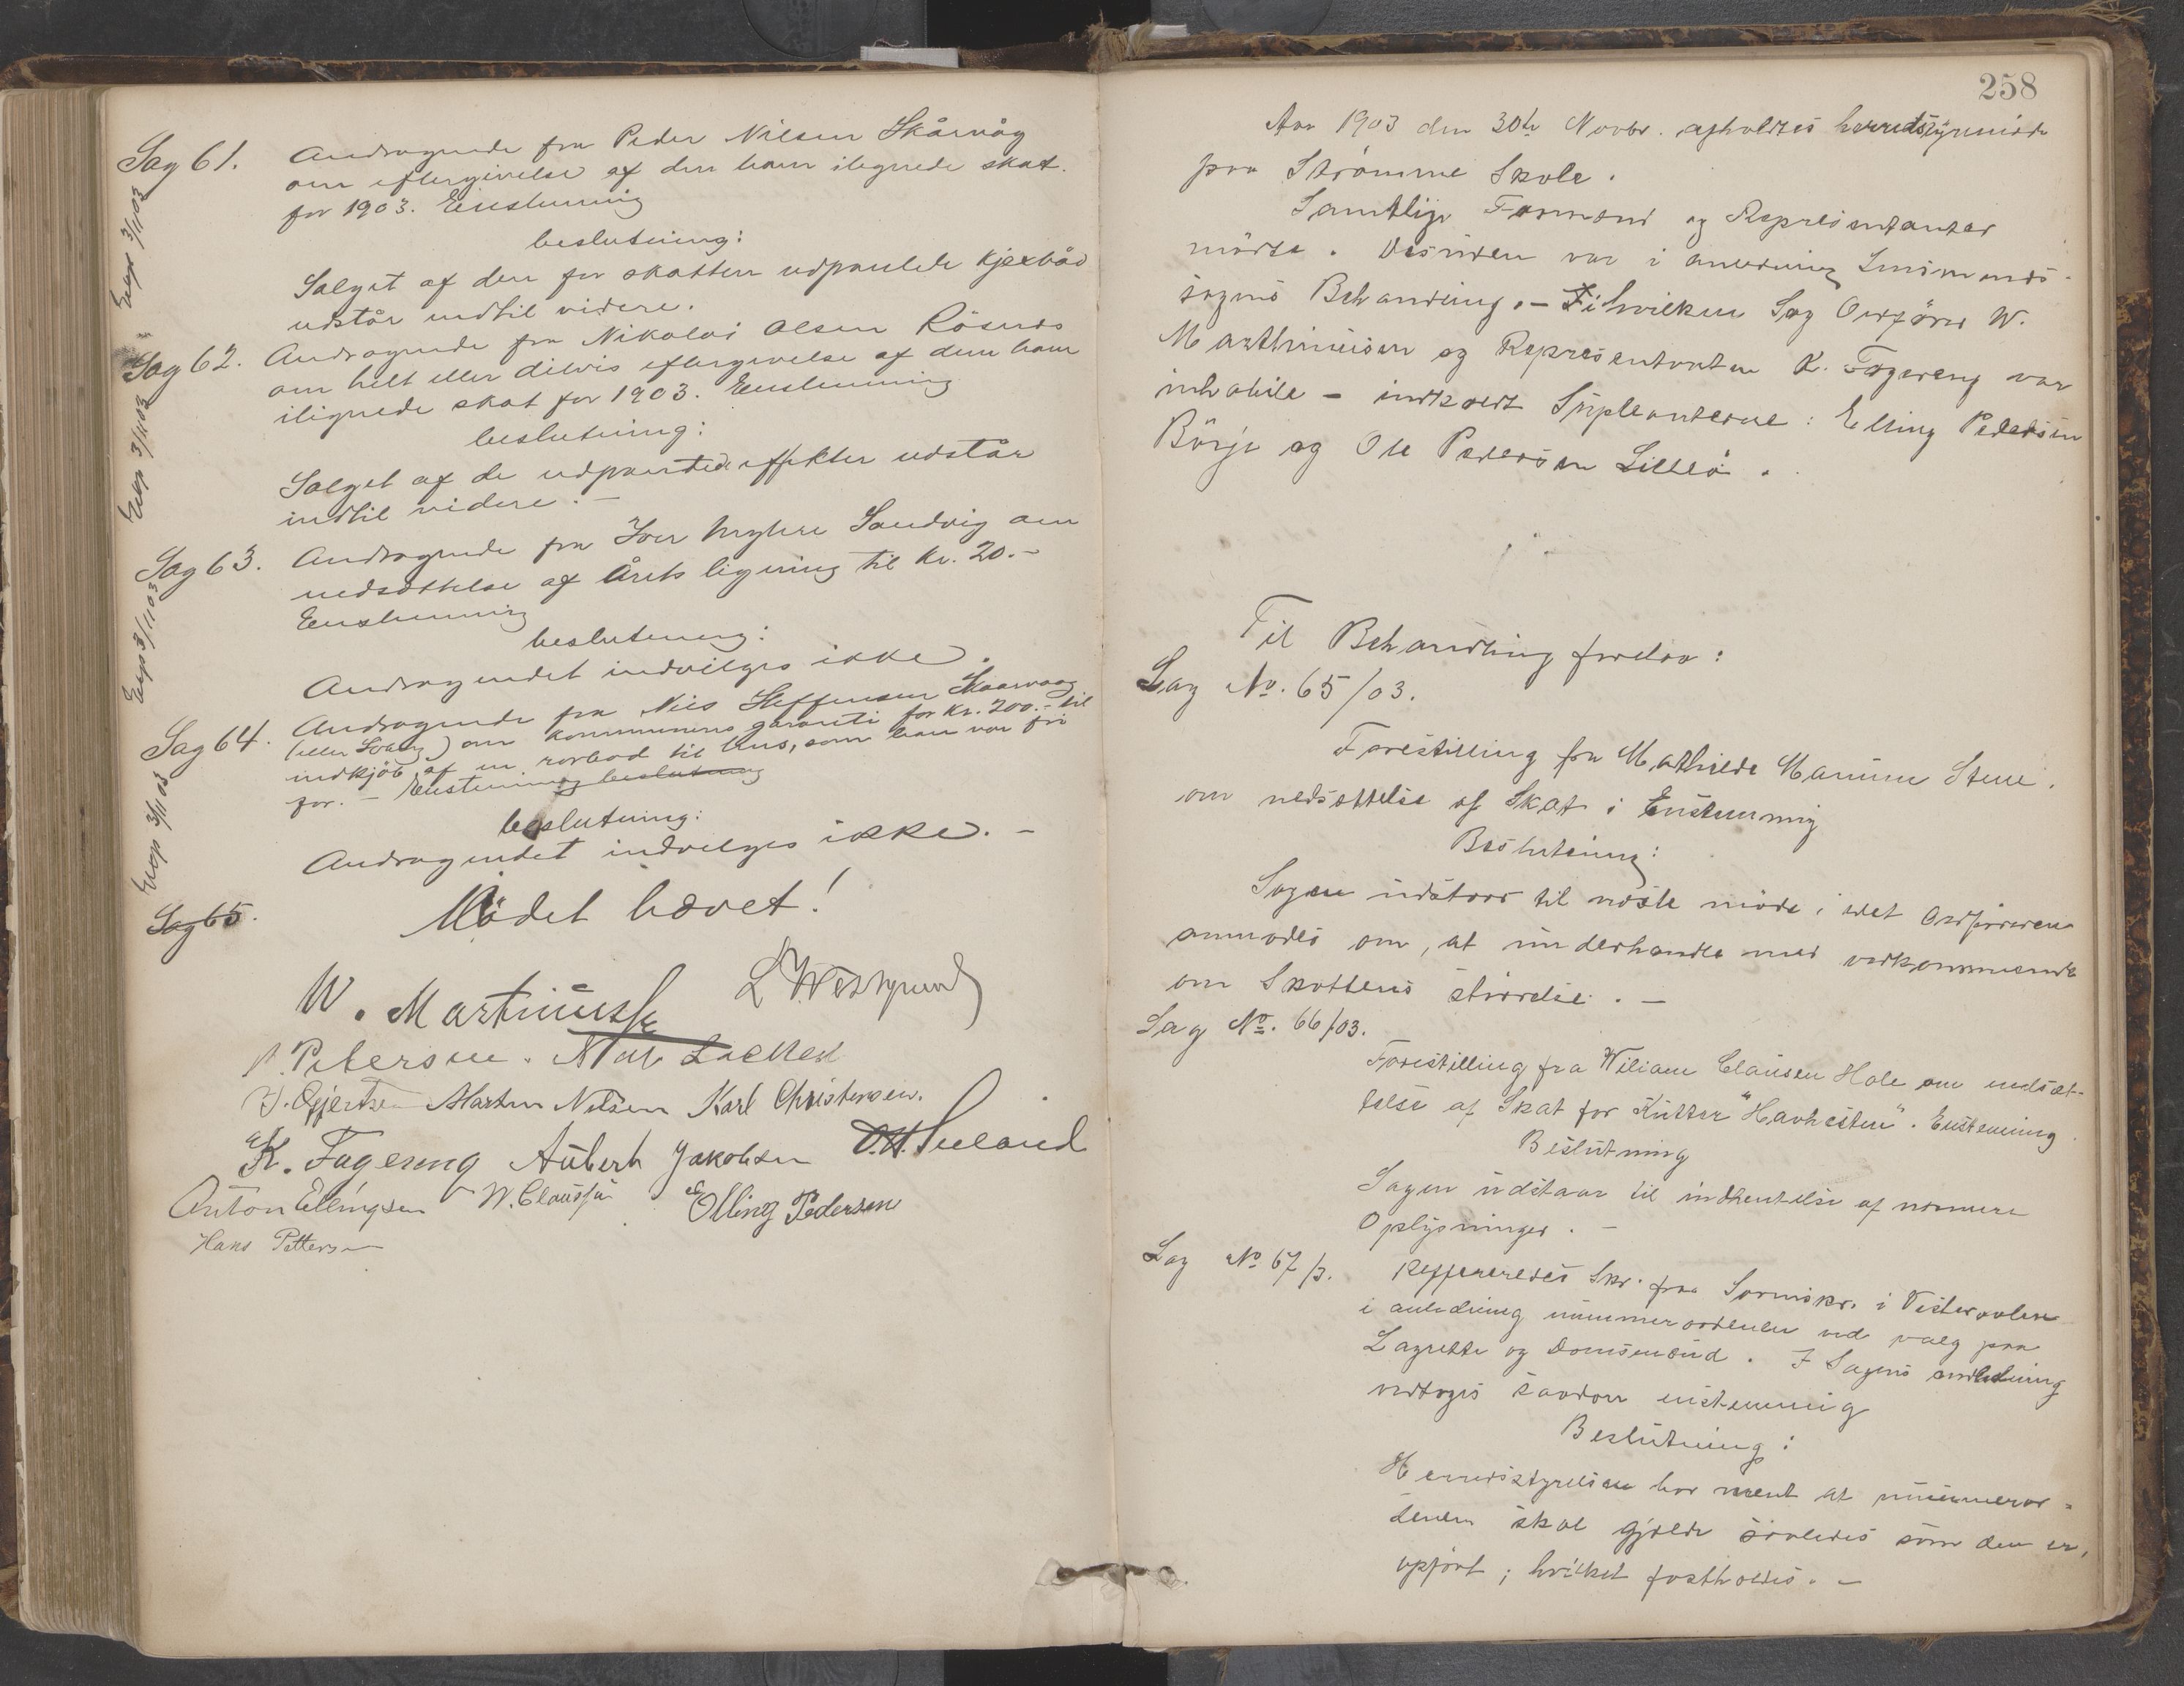 Sag 61. Andragende fra Peder Nilsen Skårvåg
om eftergivelse af den ham ilignede skat
for 1903. Enstemmig
beslutning:
Salget af den for skatten udpantede kjæxbåd
udstår indtil videre.
Exp 3/11 03
Sag 62. Andragende fra Nikolai Olsen Rösnes
om helt eller delvis eftergivelse af dem ham
ilignede skat for 1903. Enstemmig
beslutning:
Salget af de udpantede effekter udstår
indtil videre. -
Exp 3/11 03
Sag 63. Andragende fra Iver Sandvig om
nedsættelse af Årets ligning til kr. 20.-
Enstemmig
beslutning:
Andragendet indvilges ikke.
Exp 3/11 03
Sag 64. Andragende fra Nils Steffensen Skaarvaag
(eller ) om kommunens garanti for kr. 200.- til
indkjöb af en rorbod til hus, som han var fri
for. - Enstemmig beslutning
beslutning:
Andragendet indvilges ikke. -
Exp 3/11 03
Sag 65. Mödet hævet!
W. Martinussen L Westgaard
P. Petersen.
J. Gjertsen Martin Nilsen Karl Christensen.
K. Fagereng Aubert Jakobsen
Anton Ellingsen W. Claussen Elling Pedersen
Hans Pettersen
258
Aar 1903 den 30te Novbr. afholdtes herredstyremöde
paa Strömme Skole.
Samtlige Formænd og Representanter
mödte. Desuden var i anledning Lensmands-
sagens Behandling. - I hvilken Sag Ordförer W.
Marthinusen og Representanten K. Fagereng var
inhabile - indkaldt Supleanterne: Elling Pedersen
Börje og Ole Pedersen Lilleö.
Til Behandling forelaa:
Sag No. 65/03.
Forestilling fra Mathilde Marinus Stene.
om nedsættelse af Skat i Enstemmig
Beslutning:
Sagen udstaar til næste möde i det Ordföreren
anmodes om, at underhandle med vedkommende
om Skattens störrelse. -
Sag No. 66/03.
Forestilling fra Wiliam Clausen Hole om nedsæt-
telse af Skat for Kutter "Havhesten". Enstemmig
Beslutning
Sagen udstaar til indhentelse af nærmere
Oplysninger. -
Sag No 67/3. Reffereredes Skr. fra Sorenskr. i Vesteraalen
i anledning nummerordenen ved valg paa
Lagrette og Domsmænd. I Sagens anledning
vedtoges saadan enstemmig
Beslutning:
Herredsstyrelsen har ment at nummeror-
denen skal gjælde saaledes som den er
opfört; hvilket fastholdes. -